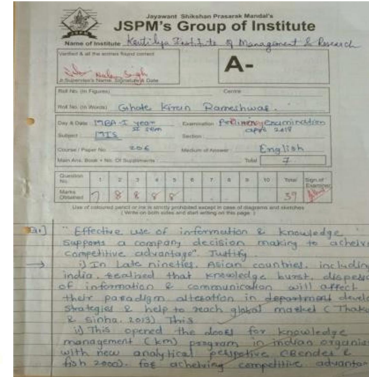 Jayawant Shikshan Prasarak Mandal's
JSPM's Group of Institute
Name of Institute Kautilya Institute of Management & Research
Verified & all the entries found correct
A Supervisor's Name, Signature & Date
A-
Roll No. (In Figures) Centre
Roll No. (In Words) Ghote Kiran Rameshwar.
Day & Date MBA-I year Examination Preliminary Examination
II sem April 2018
Subject MIS Section
Course / Paper No. 206 Medium of Answer English
Main Ans. Book + No. Of Supplements Total 7
Question No. 1 2 3 4 5 6 7 8 9 10 Total Sign of Examiner
Marks Obtained 7 8 8 8 8 39
Use of coloured pencil or ink is strictly prohibited except in cases of diagrams and sketches
( Write on both sides and start writing on this page )
Q.1] "Effective use of information & knowledge
supports a company decision making to acheive
competitive advantage". Justify.
→ i) In Late nineties, Asian countries, including
india, realised that knowledge burst, dispers
of information & communication will affect
their paradigm alteration in department devel
strategies & help to reach global market (Thak
& Sinha, 2013) This
ii) This opened the doors for knowledge
management (km) program in indian organis
with new analytical
fish 2000). for acheiving competitive advantag